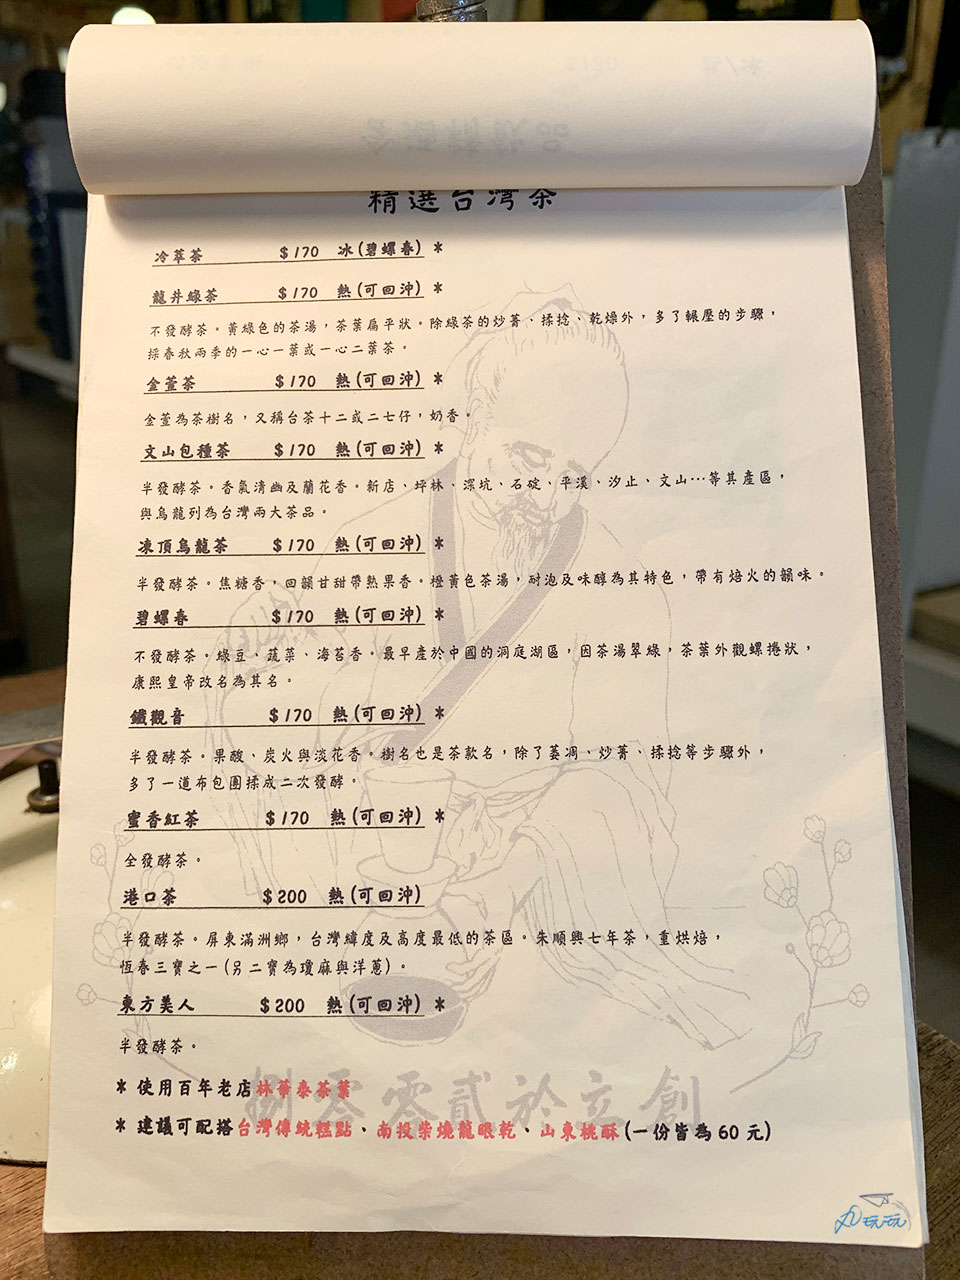 精選台灣茶
冷萃茶 $170 冰(碧螺春) *
龍井綠茶 $170 熱(可回沖) *
不發酵茶。黃綠色的茶湯，茶葉扁平狀。除綠茶的炒菁、揉捻、乾燥外，多了輾壓的步驟，
採春秋兩季的一心一葉或一心二葉茶。
金萱茶 $170 熱(可回沖) *
金萱為茶樹名，又稱台茶十二或二七仔，奶香。
文山包種茶 $170 熱(可回沖) *
半發酵茶。香氣清幽及蘭花香。新店、坪林、深坑、石碇、平溪、汐止、文山…等其產區，
與烏龍列為台灣兩大茶品。
凍頂烏龍茶 $170 熱(可回沖) *
半發酵茶。焦糖香，回韻甘甜帶熟果香。橙黃色茶湯，耐泡及味醇為其特色，帶有焙火的韻味。
碧螺春 $170 熱(可回沖) *
不發酵茶。綠豆、蔬菜、海苔香。最早產於中國的洞庭湖區，因茶湯翠綠，茶葉外觀螺捲狀，
康熙皇帝改名為其名。
鐵觀音 $170 熱(可回沖) *
半發酵茶。果酸、炭火與淡花香。樹名也是茶款名，除了萎凋、炒菁、揉捻等步驟外，
多了一道布包團揉成二次發酵。
蜜香紅茶 $170 熱(可回沖) *
全發酵茶。
港口茶 $200 熱(可回沖)
半發酵茶。屏東滿洲鄉，台灣緯度及高度最低的茶區。朱順興七年茶，重烘焙，
恆春三寶之一(另二寶為瓊麻與洋蔥)。
東方美人 $200 熱(可回沖) *
半發酵茶。
* 使用百年老店林華泰茶葉
捌零零貳於立創
* 建議可配搭台灣傳統糕點、南投柴燒龍眼乾、山東桃酥(一份皆為60元)